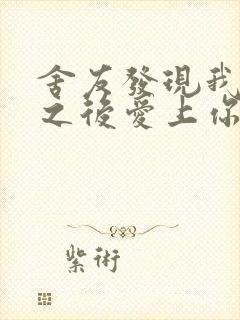 舍友發現我
之後愛上你
紫術